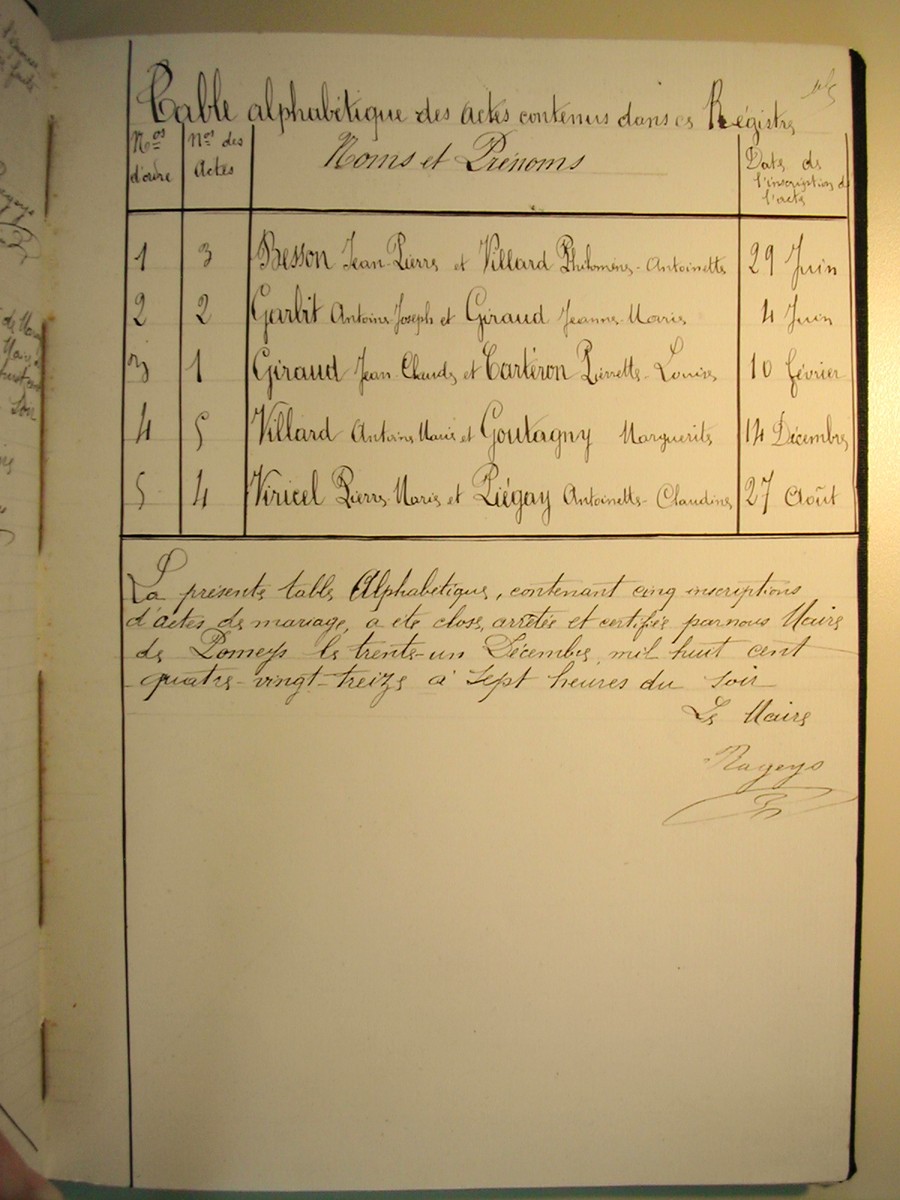 Table alphabétique des actes contenus dans ce Régistre
Nos d'ordre
Nos des Actes
Noms et Prénoms
Date de l'inscription de l'acte
1 3 Besson Jean-Pierre et Villard Philomène-Antoinette 29 Juin
2 2 Garbit Antoine Joseph et Giraud Jeanne-Marie 4 Juin
3 1 Giraud Jean-Claude et Carteron Pierrette-Louise 10 février
4 5 Villard Antoine Marie et Goutagny Marguerite 14 Décembre
5 4 Viricel Pierre-Marie et Piégay Antoinette-Claudine 27 Août
La présente table Alphabétique, contenant cinq inscriptions
d'actes de mariage, a été close, arrêtée et certifiée par nous Maire
de Pomeys le trente-un Décembre, mil huit cent
quatre-vingt-treize à Sept heures du soir
Le Maire
Rageys